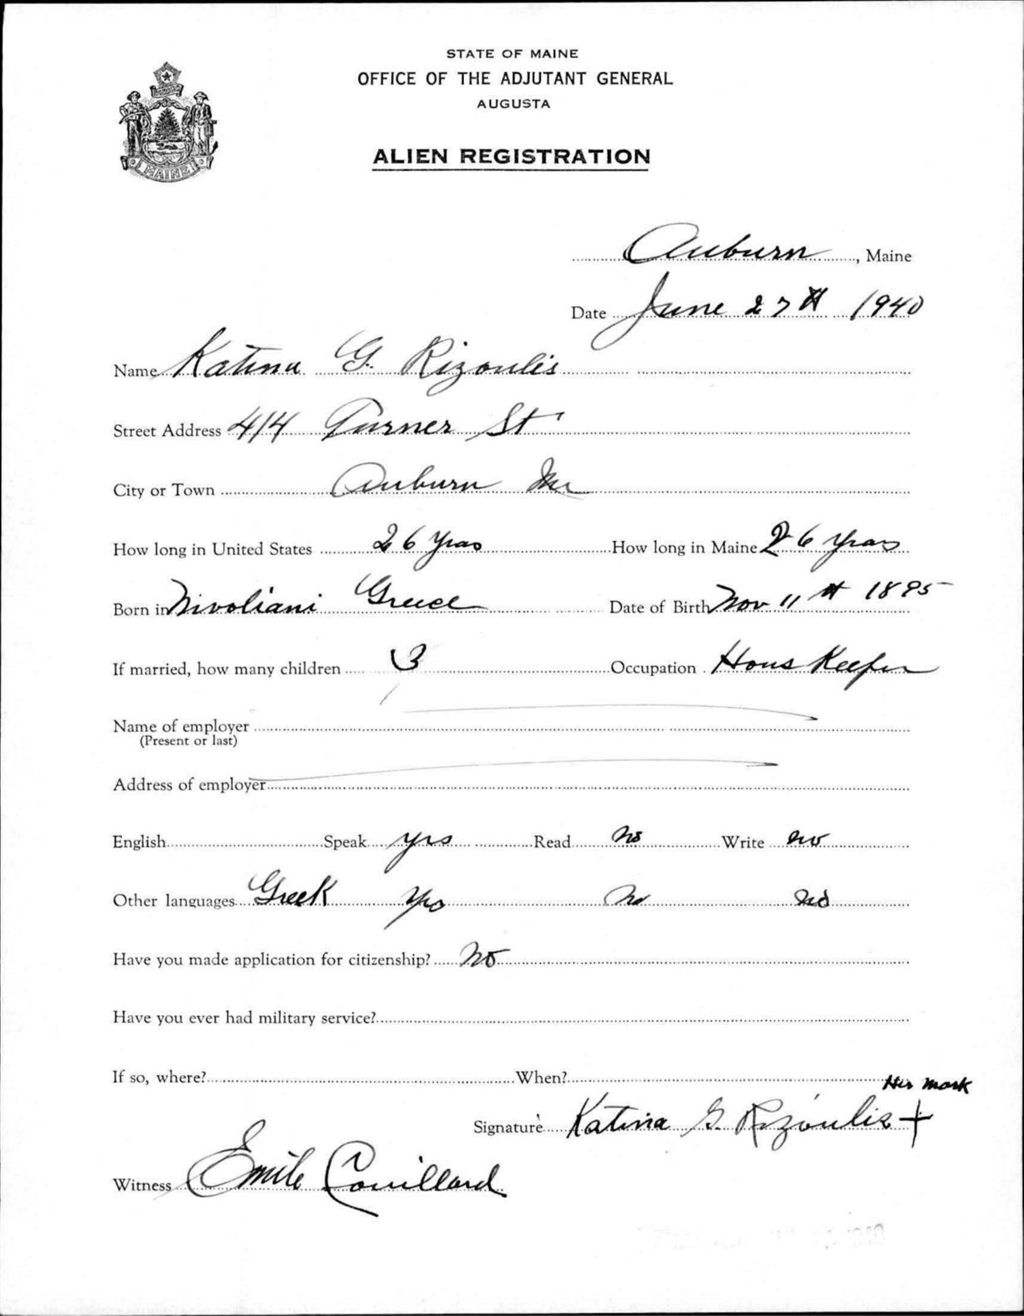 STATE OF MAINE
OFFICE OF THE ADJUTANT GENERAL
AUGUSTA
ALIEN REGISTRATION
MAINE
Auburn, Maine
Date June 27th 1940
Name Katina G. Rizoulis
Street Address 414 Turner St
City or Town Auburn Me
How long in United States 26 yras How long in Maine 26 yras
Born in Nivoliani Greece Date of Birth Nov 11th 1895
If married, how many children 3 Occupation Hous Keeper
Name of employer
(Present or last)
Address of employer
English Speak yes Read No Write no
Other languages Greek yes No No
Have you made application for citizenship? No
Have you ever had military service?
If so, where? When?
Her mark
Signature Katina G. Rizoulis +
Witness Emile Couillard